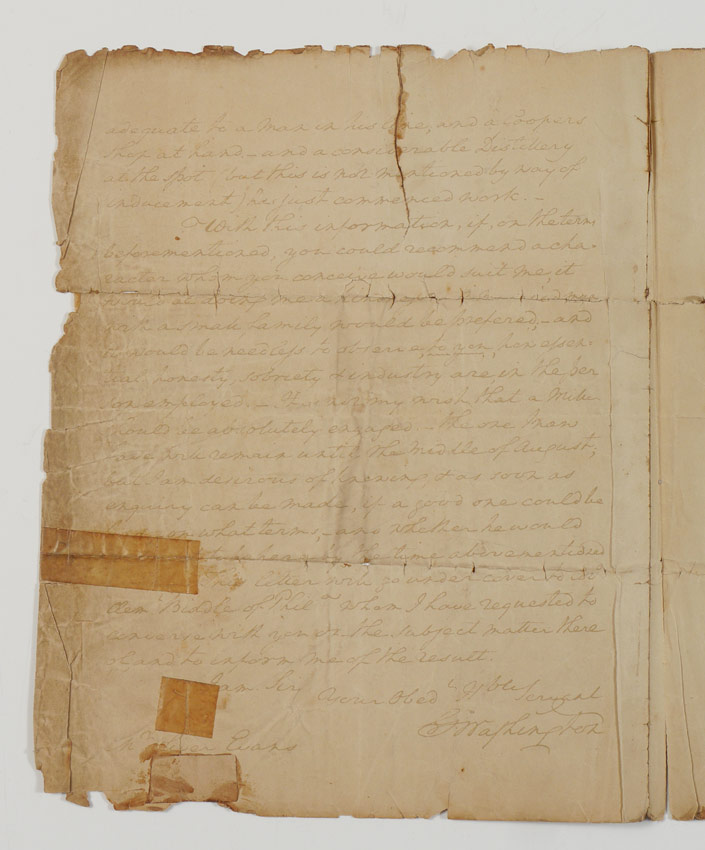 adequate to a man in his line, and a Coopers
shop at hand – and a considerable Distillery
at the spot (but this is not mentioned by way of
inducement) has just commenced work. –
With this information, if, on the term,
beforementioned, you could recommend a cha-
racter whom you conceive would suit me, it
would be doing me a kindness
a small family would be prefered, – and
it would be needless to observe to you, how essen-
tial honesty, sobriety & industry are in the per
son employed. – It is not my wish that a Mille
should be absolutely engaged. – the one I now
have will remain until the Middle of August,
but I am desirous of knowing, & as soon as
enquiry can be made, if a good one could be
had, on what terms, – and whether he would
be here by the time abovementioned
This letter will go under cover to
Clem Biddle of Phila whom I have requested to
converse with you on the subject matter there
of, and to inform me of the result.
I am Sir
Your Obed t Hble Servant
G Washington
Mr Oliver Evans